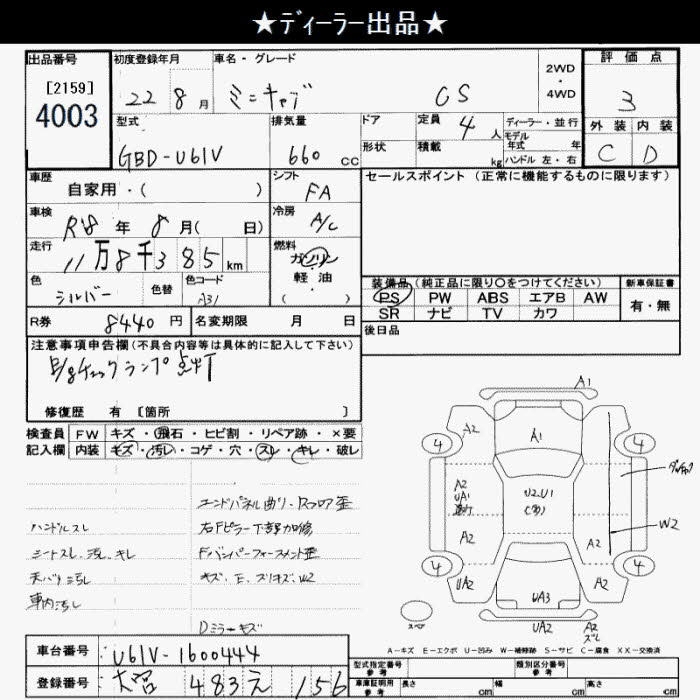 ★ディーラー出品★
出品番号
[2159]
4003
初度登録年月
22 8 月
車名・グレード
ミニキャブ
CS
2WD
・
4WD
評価点
3
外装 内装
C D
型式
GBD-U61V
排気量
660 cc
ドア
形状
定員
4 人
積載
kg
ディーラー・並行
モデル年式 年
ハンドル 左・右
車歴
自家用・( )
シフト
FA
冷房
A/C
車検
R8 年 8 月( 日)
走行
11万8千385 km
燃料
ガソリン
軽・油
( )
色
シルバー
色替
色コード
A31
R券
8440 円
名変期限 月 日
セールスポイント (正常に機能するものに限ります)
装備品 (純正品に限り○をつけてください)
PS PW ABS エアB AW
SR ナビ TV カワ
新車保証書
有・無
後日品
注意事項申告欄(不具合内容等は具体的に記入して下さい)
E/gチェックランプ点灯
修復歴 有 [箇所 ]
検査員
記入欄
FW キズ・飛石・ヒビ割・リペア跡・×要
内装 キズ・汚レ・コゲ・穴・スレ・キレ・破レ
ハンドルスレ
シートスレ、汚レ、キレ
天バリ汚レ
車内汚レ
エンドパネル曲り・Rフロア歪
右Fピラー下部加修
Fバンパーフォースメント歪
キズ、E、スリキズ、W2
Dミラーキズ
A1
A2
A1
4
4
A2
UA1
U2.U1
W2
A2
A2
4
4
UA2
A2
UA3
スペア
UA2
A2
スレ
A-キズ E-エクボ U-凹み W-補修跡 S-サビ C-腐食 XX-交換済
車台番号
U61V-1600444
登録番号
大宮 483え 156
型式指定番号
参考
類別区分番号
参考
車庫証明用
参考
長さ cm 幅 cm 高さ cm